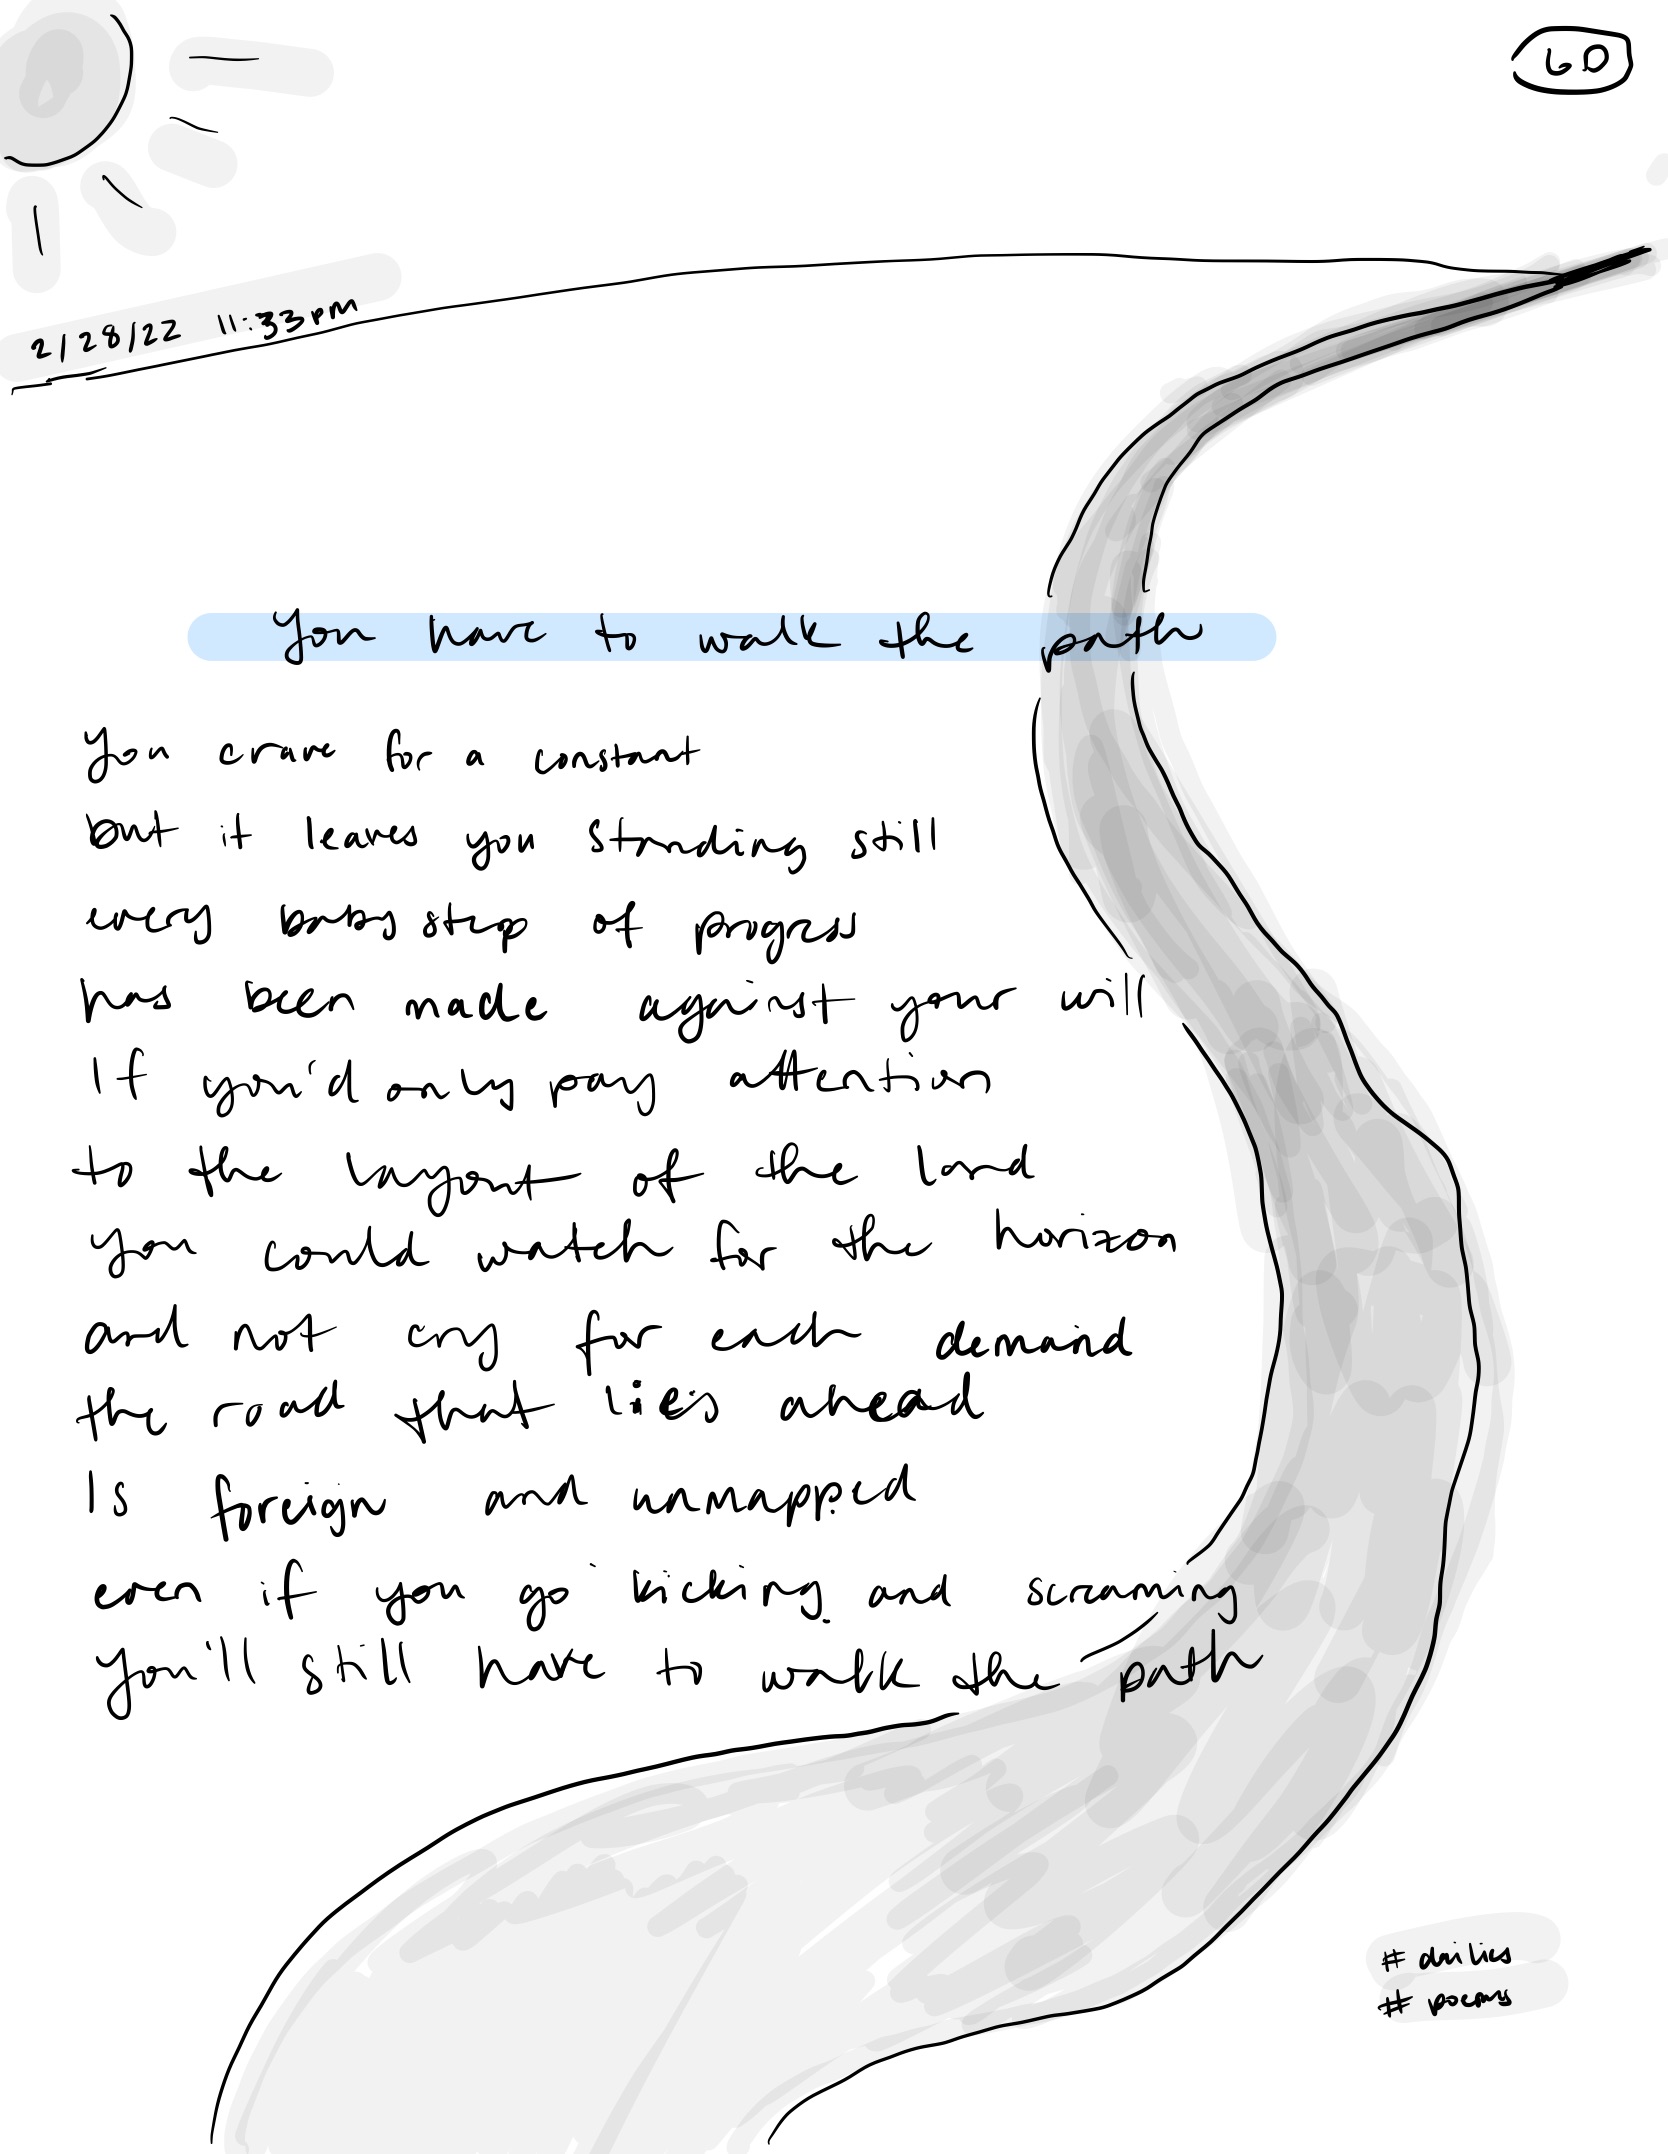 60
2/28/22 11:33pm
You have to walk the path
You crave for a constant
but it leaves you standing still
every baby step of progress
has been made against your will
If you'd only pay attention
to the layout of the land
you could watch for the horizon
and not cry for each demand
the road that lies ahead
Is foreign and unmapped
even if you go kicking and screaming
you'll still have to walk the path
# dailies
# poems